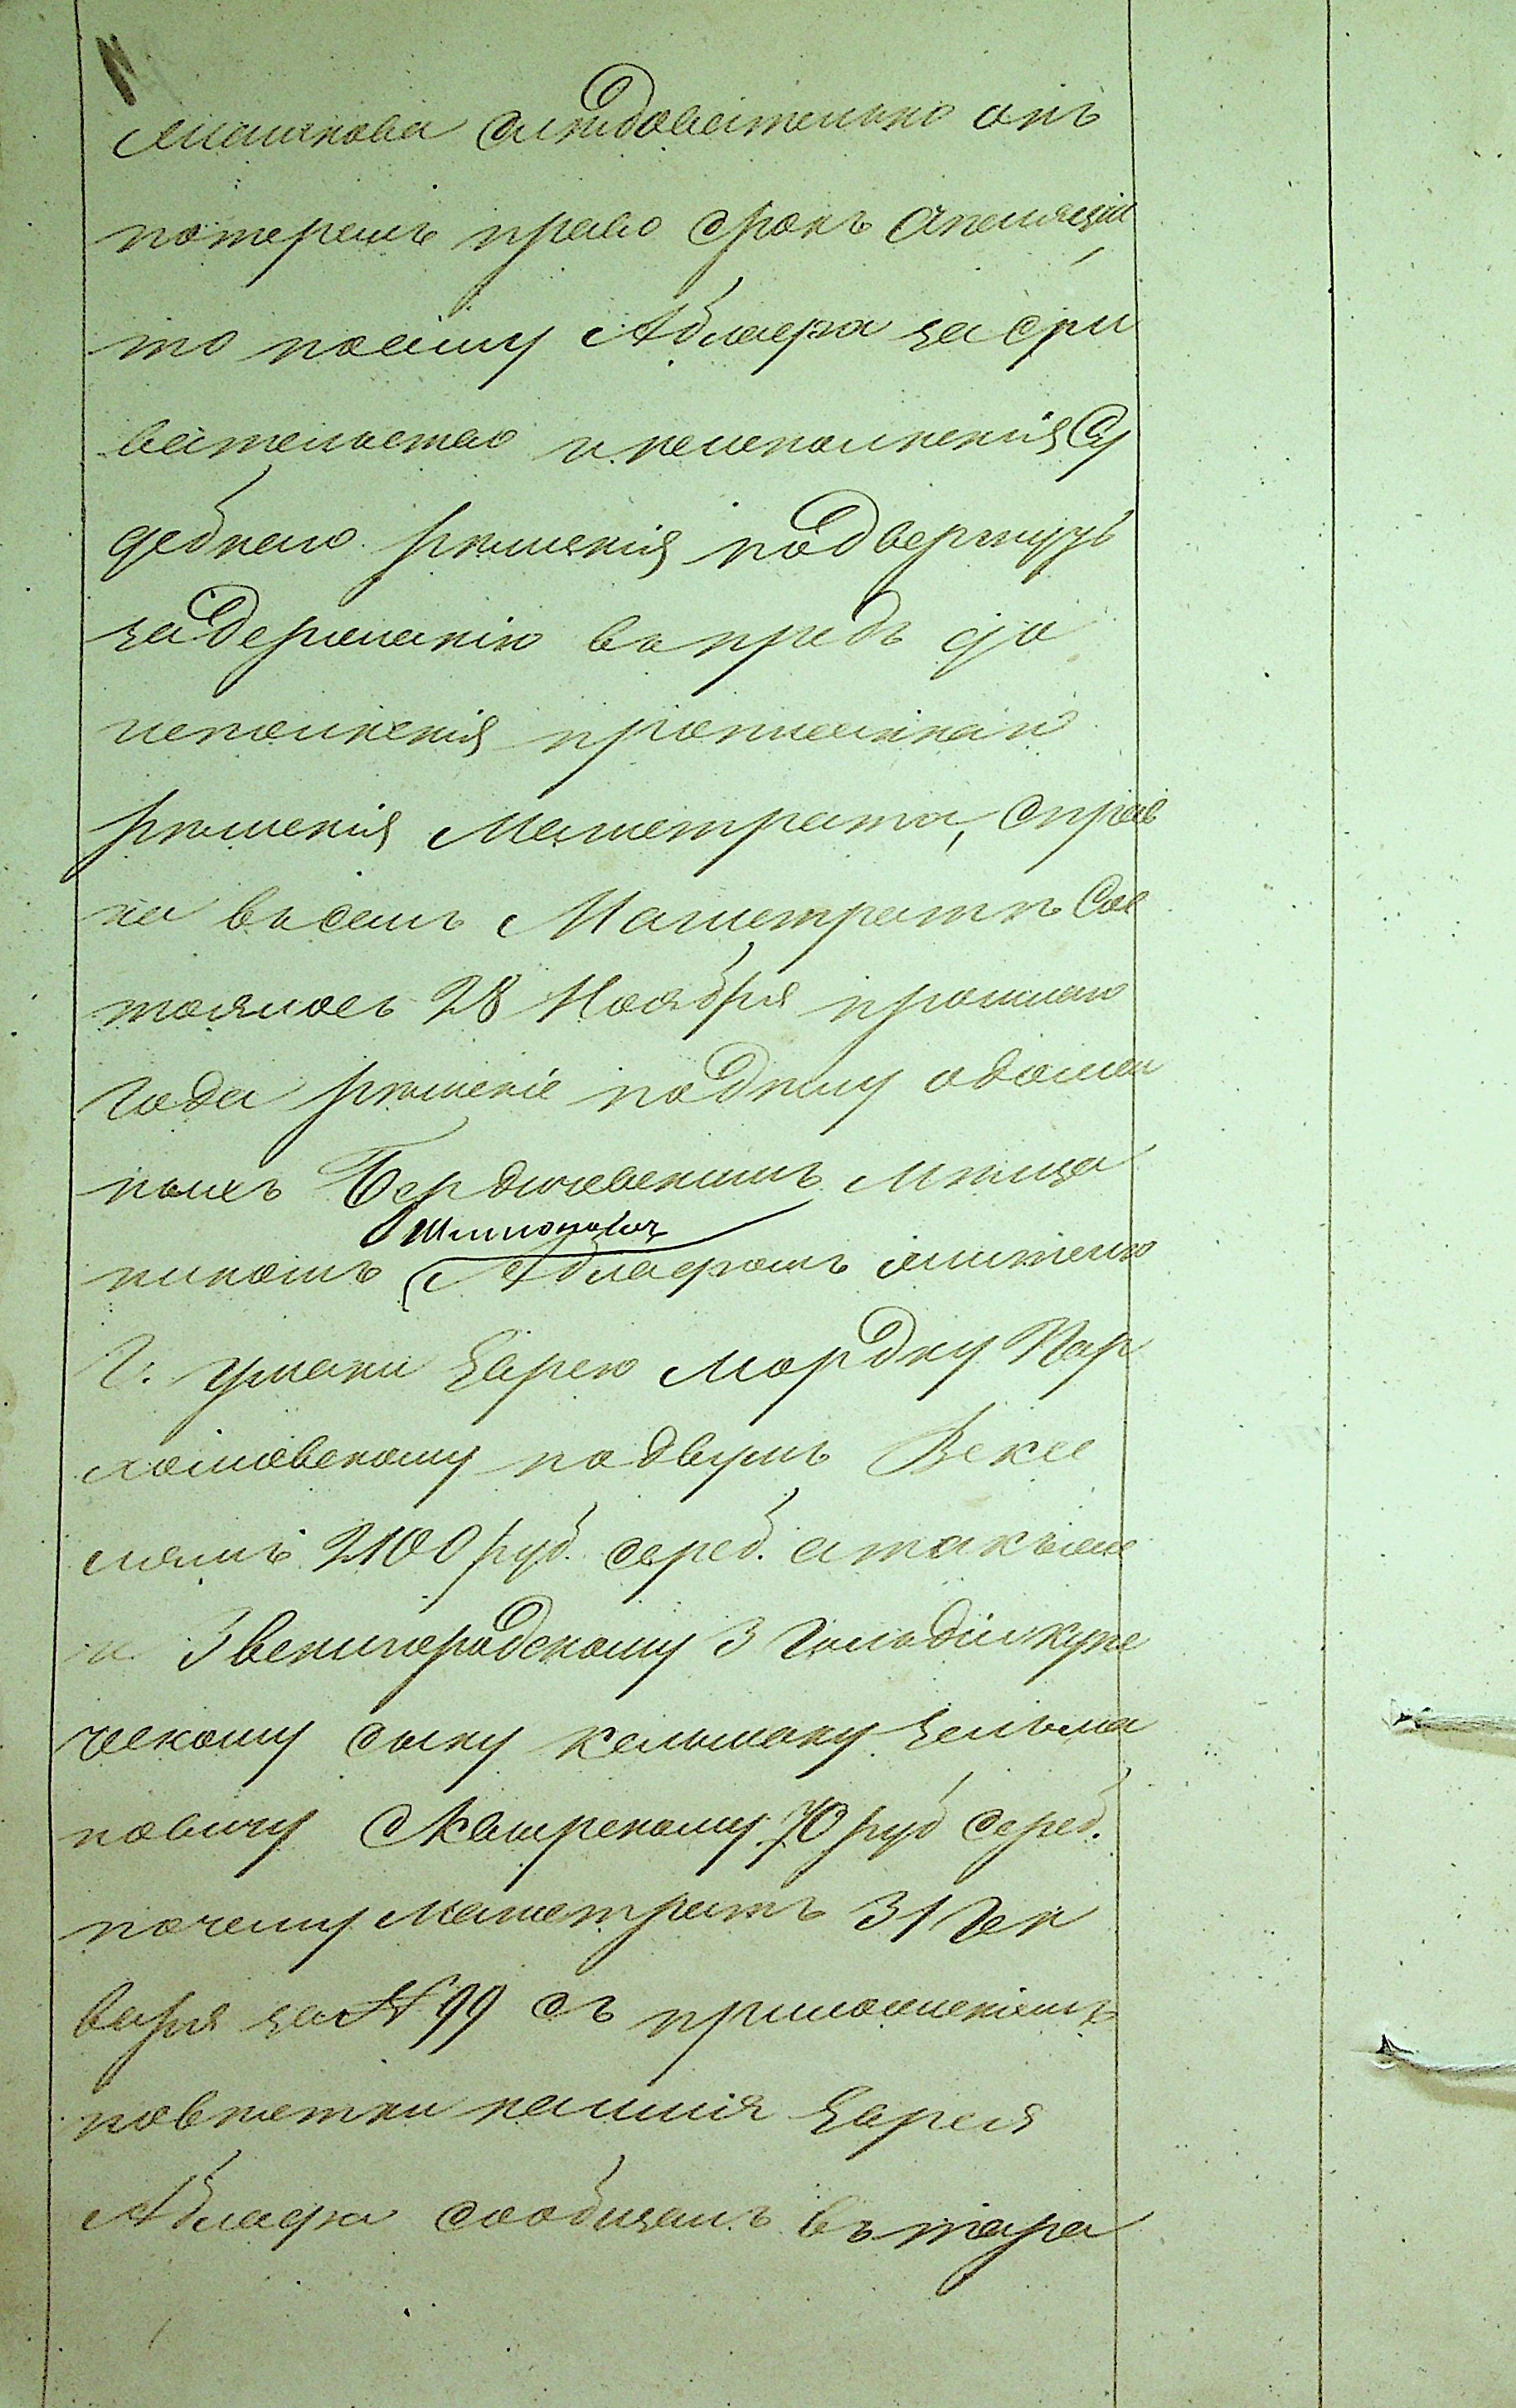 следовательно онъ
потерялъ право срокъ Апеляціи
то посиму Аблафа за сри
вательство и неисполненія Су
дебнаго рѣшенія подвергнуть
задержанію впредь до
исполненія прописаннаго
рѣшенія Магистрата, справ
ка въ семъ Магистратѣ Сос
тоялось 28 Ноября прошлаго
года рѣшеніе подѣлу одолжен
ныхъ Бердичевскимъ мѣща
Шимоновичъ
ниномъ Аблафомъ жителю
г. Умани Еврею Мордку Пар
хомовскому подвумъ Вексе
лямъ 2100 руб. сереб. атакъже
и Звенигородскому 3 Гильдіи купе
ческому сыну Кельману Зельма
новичу Сквирскому 70 руб сереб.
почему Магистратъ 31 Ген
варя за № 99 съ приложеніемъ
повѣстки наимя Еврея
Аблафа сообщалъ въ тара